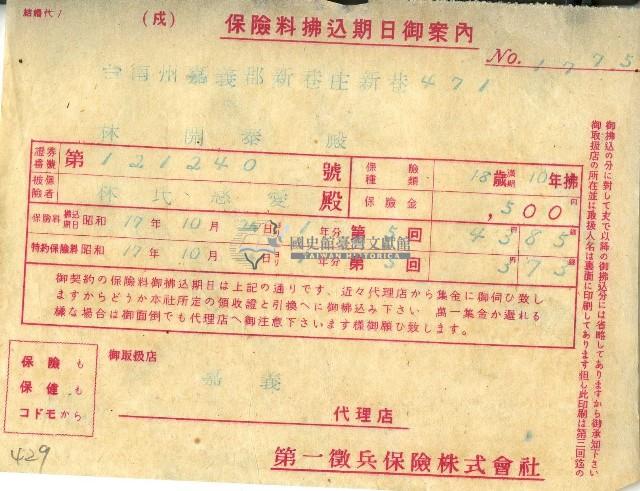 結婚代
(戌)
保險料拂込期日御案內
No. 1775
台南州嘉義郡新巷庄新巷471
林開泰殿
證券番號 第121240號
保險種類 18歲滿期10年拂
被保險者 林氏慈愛殿
保險金 ,500圓
保險料拂込期日 昭和17年10月25日より1年分 第5回 43圓85錢
特約保險料 昭和17年10月 日より 年分 第5回 3圓73錢
國史館臺灣文獻館
TAIWAN HISTORICA
御契約の保險料御拂込期日は上記の通りです、近々代理店から集金に御伺ひ致し
ますからどうか本社所定の領收證と引換へに御拂込み下さい 萬一集金が遲れる
樣な場合は御面倒でも代理店へ御注意下さいます樣御願ひ致します。
御拂込の分に對して丈で以降の御拂込分には省略してありますから御承知下さい
御取扱店の所在並に取扱人名は裏面に印刷してあります但し此印刷は第三回迄の
保險も
保健も
コドモから
御取扱店
嘉義
代理店
第一徵兵保險株式會社
429